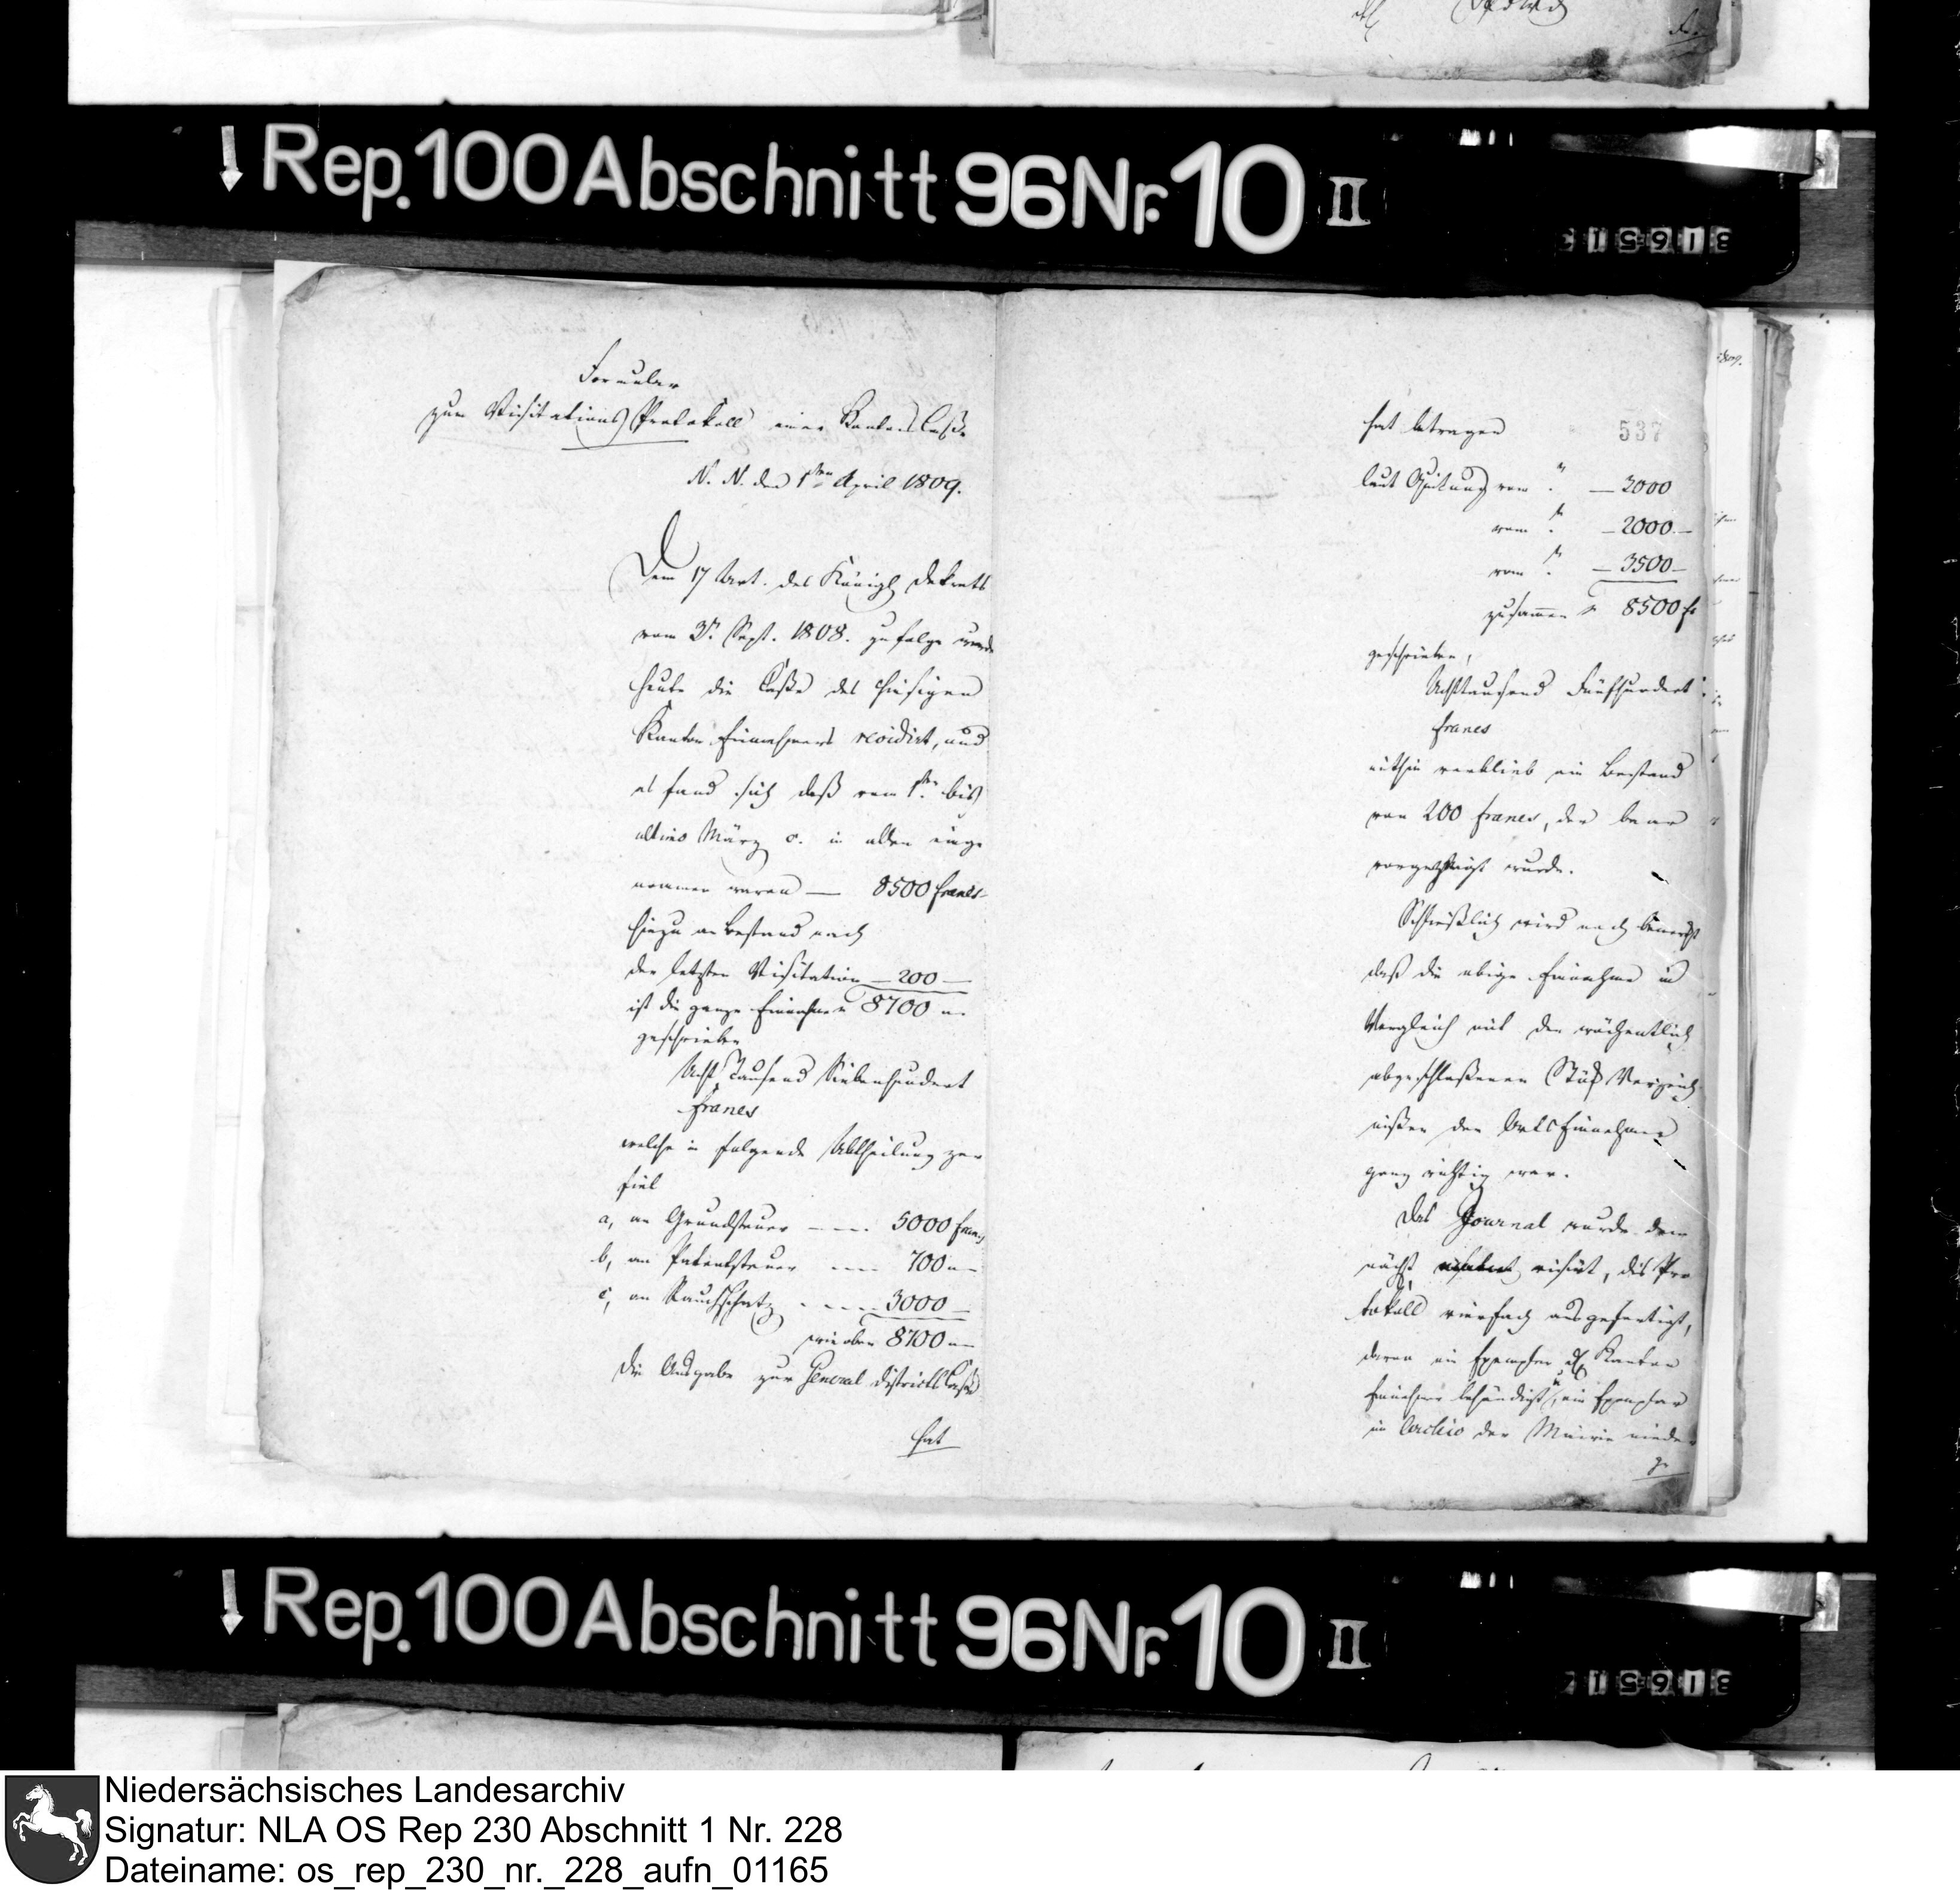 Rep. 100 Abschnitt 96 Nr. 10 II
Formular
zum Visitations Protokoll einer Kantons Casse
N. N. den 1ten April 1809.
Dem 17 Art. des Königl. Dekrets
vom 3n Sept. 1808. zufolge wurde
heute die Casse des hiesigen
Kanton Einnehmers revidirt, und
es fand sich daß vom 1ten bis
ultimo März c. in allen einge
nommen waren — 8500 francs
hiezu an Bestand nach
der letzten Visitation — 200 —
ist die ganze Einnahme 8700 "
geschrieben
Acht Tausend Siebenhundert
francs
welche in folgende Abtheilung zer
fiel
a, an Grundsteuer — — 5000 francs
b, an Patentsteuer — — 700 "
c, an Rauchschatz — — 3000 —
wie oben 8700 "
Die Ausgabe zur General Districts Casse
hat
hat betragen
537
laut Quitung vom " — 3000
vom " — 2000 —
vom " — 3500 —
zusammen " 8500 fr
geschrieben,
Achttausend Fünfhundert
francs
mithin verblieb ein Bestand
von 200 francs, der baar
vorgezeigt wurde.
Schließlich wird noch bemerkt
daß die obige Einnahme in
Vergleich mit den wöchentlich
abgeschlossenen Stück Verzeich
nißen der Orts Einnehmer
ganz richtig war.
Das Journal wurde dem
nächst visirt, dis Pro
tokoll vierfach ausgefertigt,
davon ein Exemplar dH Kanton
Einnehmer behändigt, ein Exemplar
im Archiv der Mairie nieder
ge
Rep. 100 Abschnitt 96 Nr. 10 II
Niedersächsisches Landesarchiv
Signatur: NLA OS Rep 230 Abschnitt 1 Nr. 228
Dateiname: os_rep_230_nr._228_aufn_01165